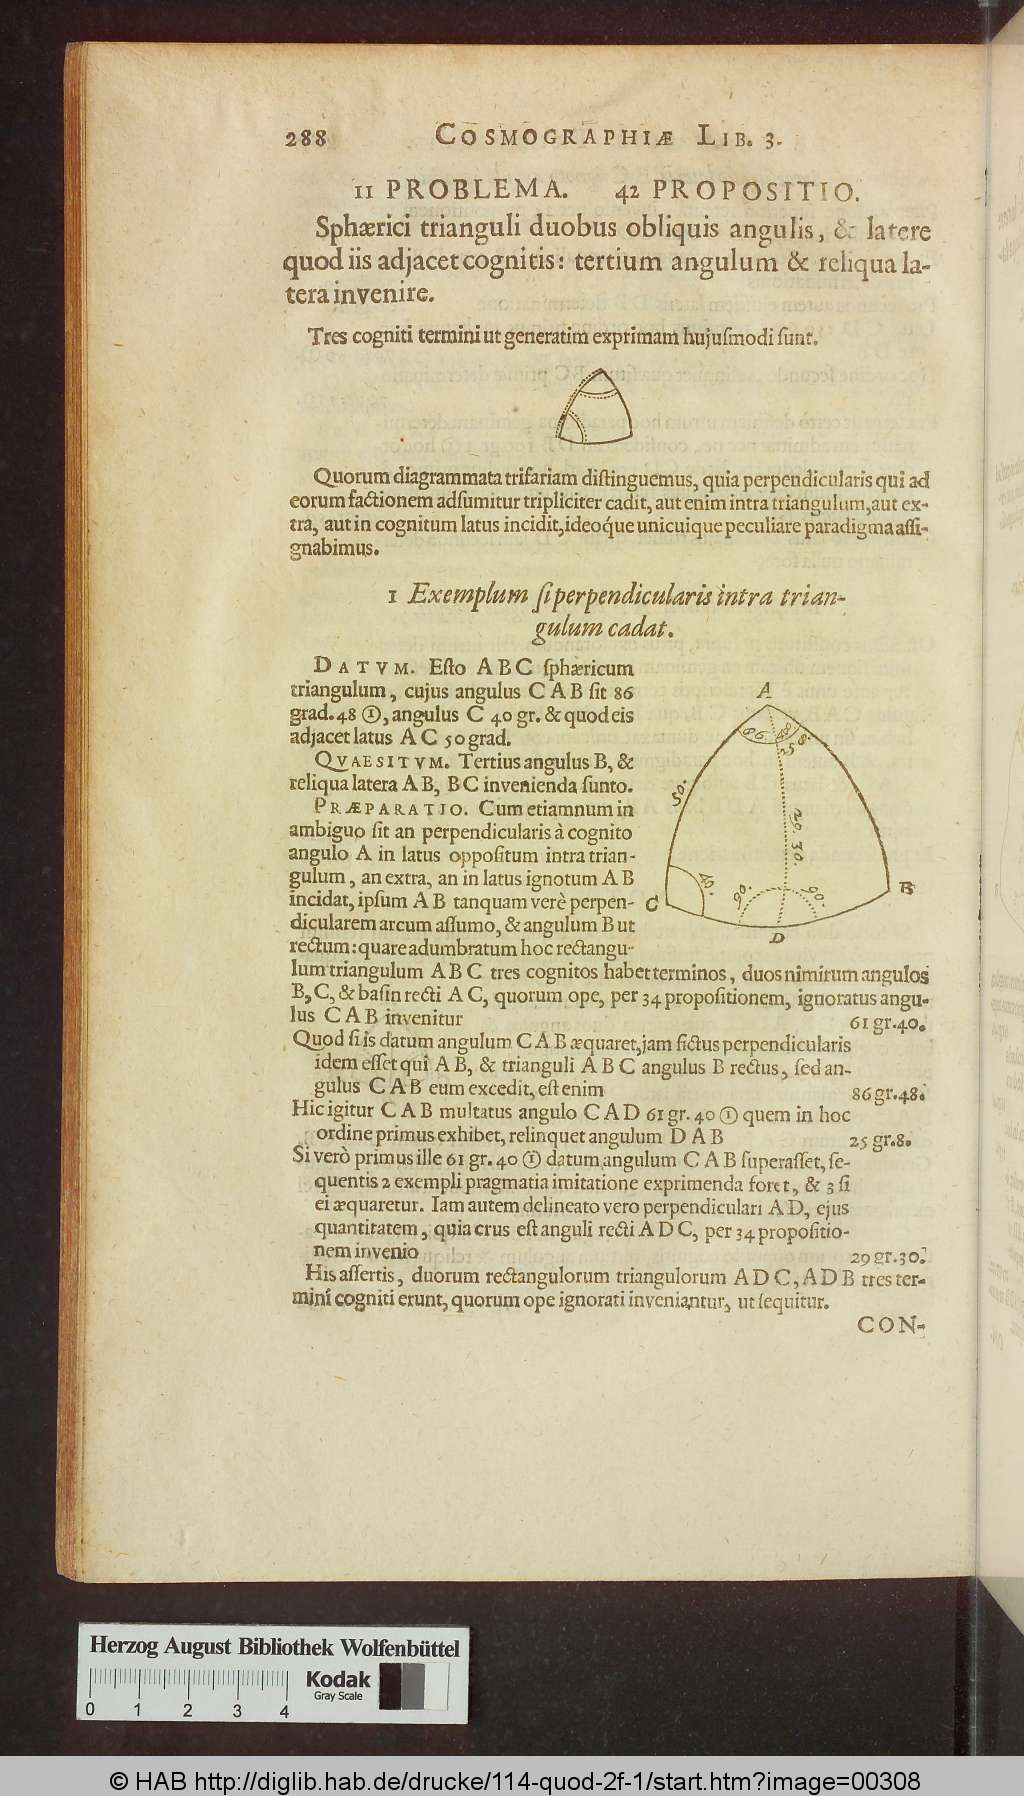 288 COSMOGRAPHIÆ LIB. 3.
11 PROBLEMA. 42 PROPOSITIO.
Sphærici trianguli duobus obliquis angulis, & latere
quod iis adjacet cognitis: tertium angulum & reliqua la-
tera invenire.
Tres cogniti termini ut generatim exprimam hujuſmodi ſunt.
Quorum diagrammata trifariam diſtinguemus, quia perpendicularis qui ad
eorum factionem adſumitur tripliciter cadit, aut enim intra triangulum, aut ex-
tra, aut in cognitum latus incidit, ideoq́ue unicuique peculiare paradigma aſſi-
gnabimus.
1 Exemplum ſi perpendicularis intra trian-
gulum cadat.
DATVM. Eſto ABC ſphæricum
triangulum, cujus angulus CAB ſit 86
grad. 48 ①, angulus C 40 gr. & quod eis
adjacet latus AC 50 grad.
QVAESITVM. Tertius angulus B, &
reliqua latera AB, BC invenienda ſunto.
PRÆPARATIO. Cum etiamnum in
ambiguo ſit an perpendicularis à cognito
angulo A in latus oppoſitum intra trian-
gulum, an extra, an in latus ignotum AB
incidat, ipſum AB tanquam verè perpen-
dicularem arcum aſſumo, & angulum B ut
rectum: quare adumbratum hoc rectangu-
A
86.
48
25
8.
50.
29. 30.
40.
90.
90.
C
B
D
lum triangulum ABC tres cognitos habet terminos, duos nimirum angulos
B, C, & baſin recti AC, quorum ope, per 34 propoſitionem, ignoratus angu-
lus CAB invenitur 61 gr. 40.
Quod ſi is datum angulum CAB æquaret, jam fictus perpendicularis
idem eſſet qui AB, & trianguli ABC angulus B rectus, ſed an-
gulus CAB eum excedit, eſt enim 86 gr. 48.
Hic igitur CAB multatus angulo CAD 61 gr. 40 ① quem in hoc
ordine primus exhibet, relinquet angulum DAB 25 gr. 8.
Si verò primus ille 61 gr. 40 ① datum angulum CAB ſuperaſſet, ſe-
quentis 2 exempli pragmatia imitatione exprimenda foret, & 3 ſi
ei æquaretur. Iam autem delineato vero perpendiculari AD, ejus
quantitatem, quia crus eſt anguli recti ADC, per 34 propoſitio-
nem invenio 29 gr. 30.
His aſſertis, duorum rectangulorum triangulorum ADC, ADB tres ter-
mini cogniti erunt, quorum ope ignorati inveniantur, ut ſequitur.
CON-
Herzog August Bibliothek Wolfenbüttel
Kodak
Gray Scale
0 1 2 3 4
© HAB http://diglib.hab.de/drucke/114-quod-2f-1/start.htm?image=00308